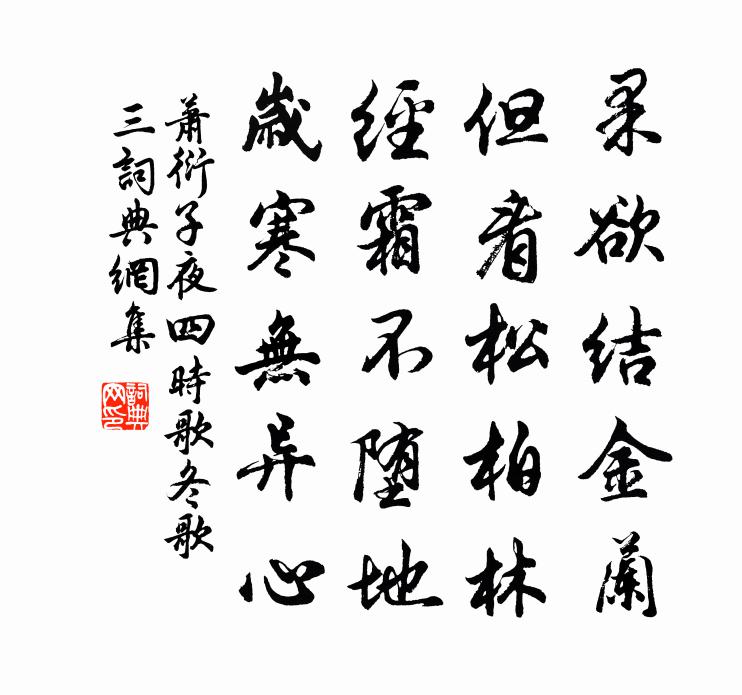 果欲結金蘭
但看松柏林
經霜不堕地
歲寒無异心
蕭衍子夜四時歌冬歌
三詞典網集
詞典网印